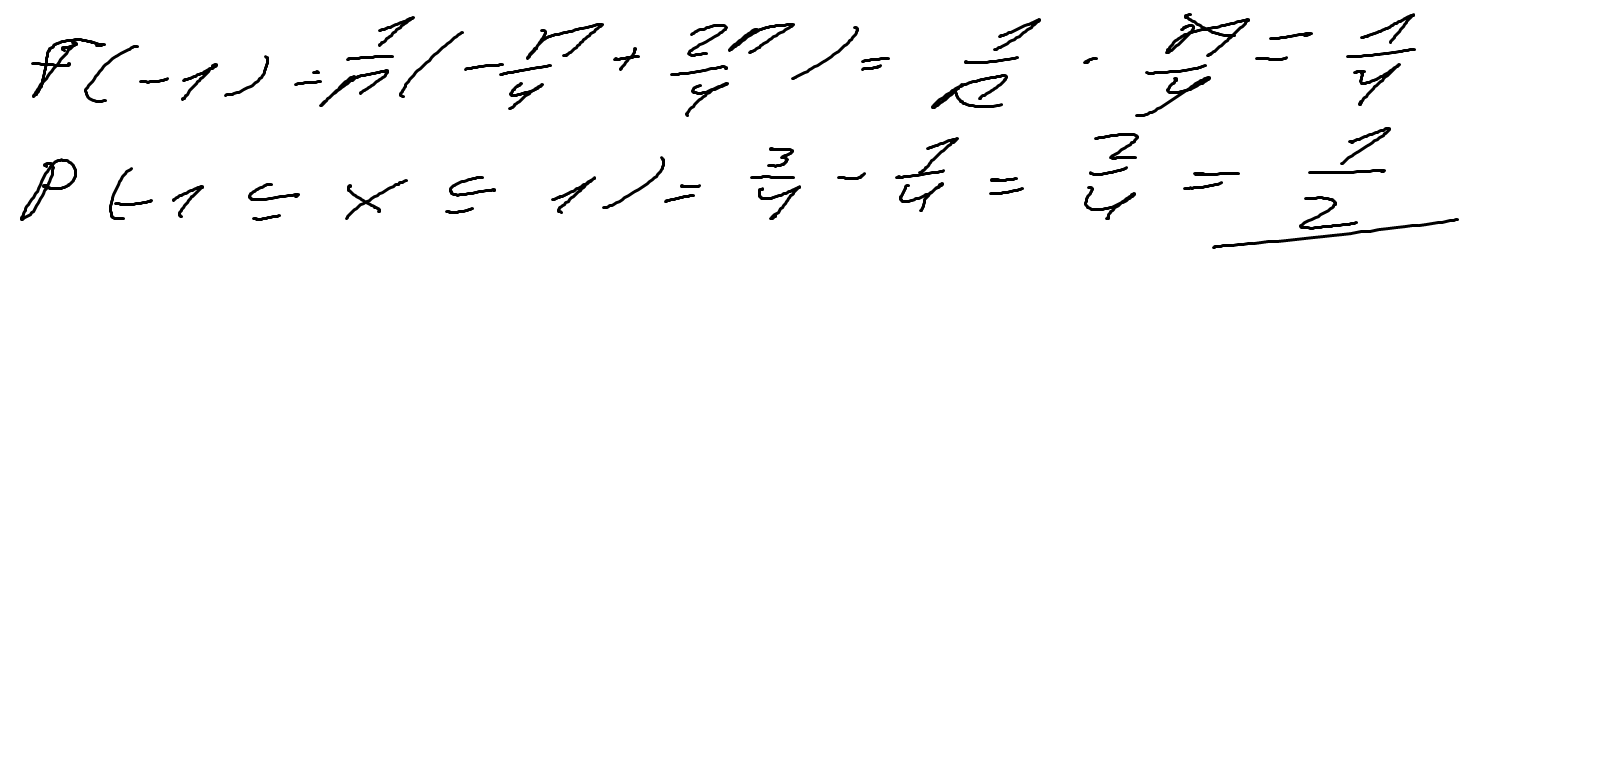 F(-1) = 1/π (-π/4 + 2π/4) = 1/π · π/4 = 1/4
P(-1 ≤ x ≤ 1) = 3/4 - 1/4 = 2/4 = 1/2